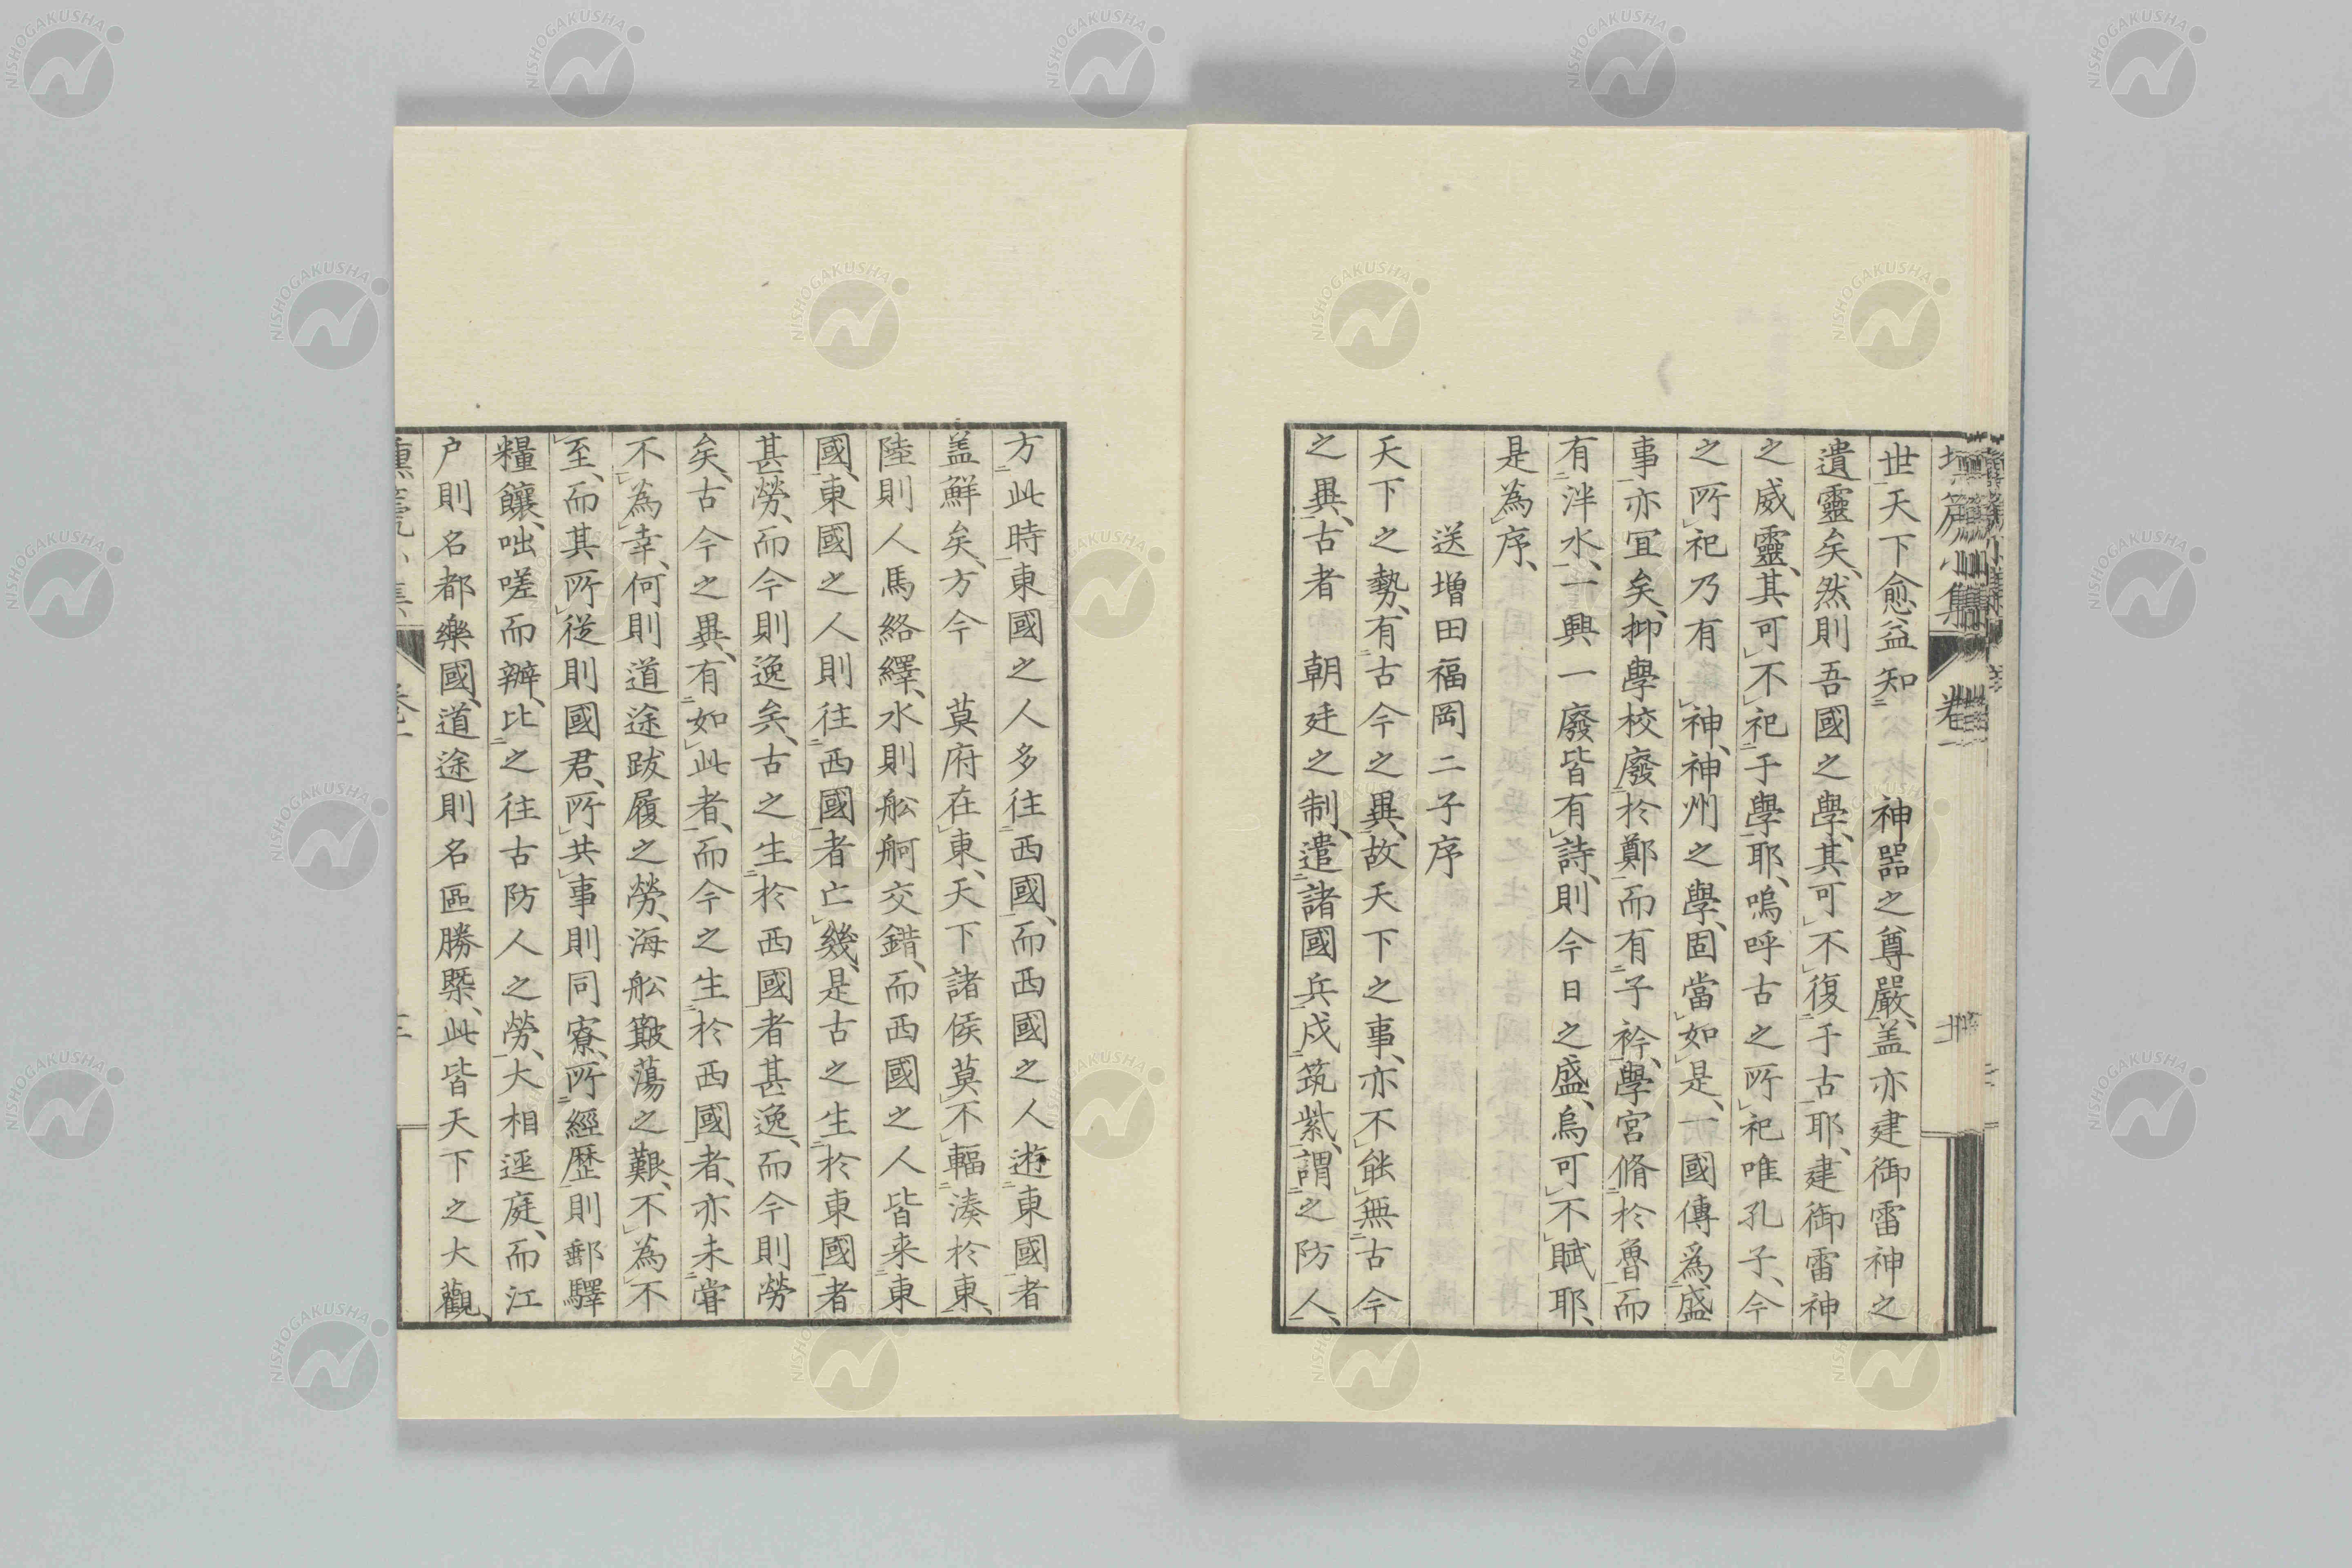 世天下愈益知　神器之尊嚴、盖亦建御雷神之
遺靈矣、然則吾國之學、其可不復于古耶、建御雷神
之威靈、其可不祀于學耶、嗚呼古之所祀唯孔子、今
之所祀乃有神、神州之學、固當如是、一國傳爲盛
事、亦宜矣、抑學校廢於鄭而有子衿、學宮脩於魯而
有泮水、一興一廢皆有詩、則今日之盛、烏可不賦耶、
是為序、
送増田福岡二子序
天下之勢、有古今之異、故天下之事、亦不能無古今
之異、古者　朝廷之制、遣諸國兵戍筑紫、謂之防人、
方此時東國之人多往西國、而西國之人遊東國者
盖鮮矣、方今　莫府在東、天下諸侯莫不輻湊於東、
陸則人馬絡繹、水則舩舸交錯、而西國之人皆来東
國、東國之人則往西國者亡幾、是古之生於東國者
甚勞、而今則逸矣、古之生於西國者甚逸、而今則勞
矣、古今之異、有如此者、而今之生於西國者、亦未嘗
不為幸、何則道途跋履之勞、海舩簸蕩之艱、不為不
至、而其所從則國君、所共事則同寮、所經歴則郵驛
糧饟、咄嗟而辦、比之往古防人之勞、大相逕庭、而江
户則名都樂國、道途則名區勝槩、此皆天下之大觀、
NISHOGAKUSHA